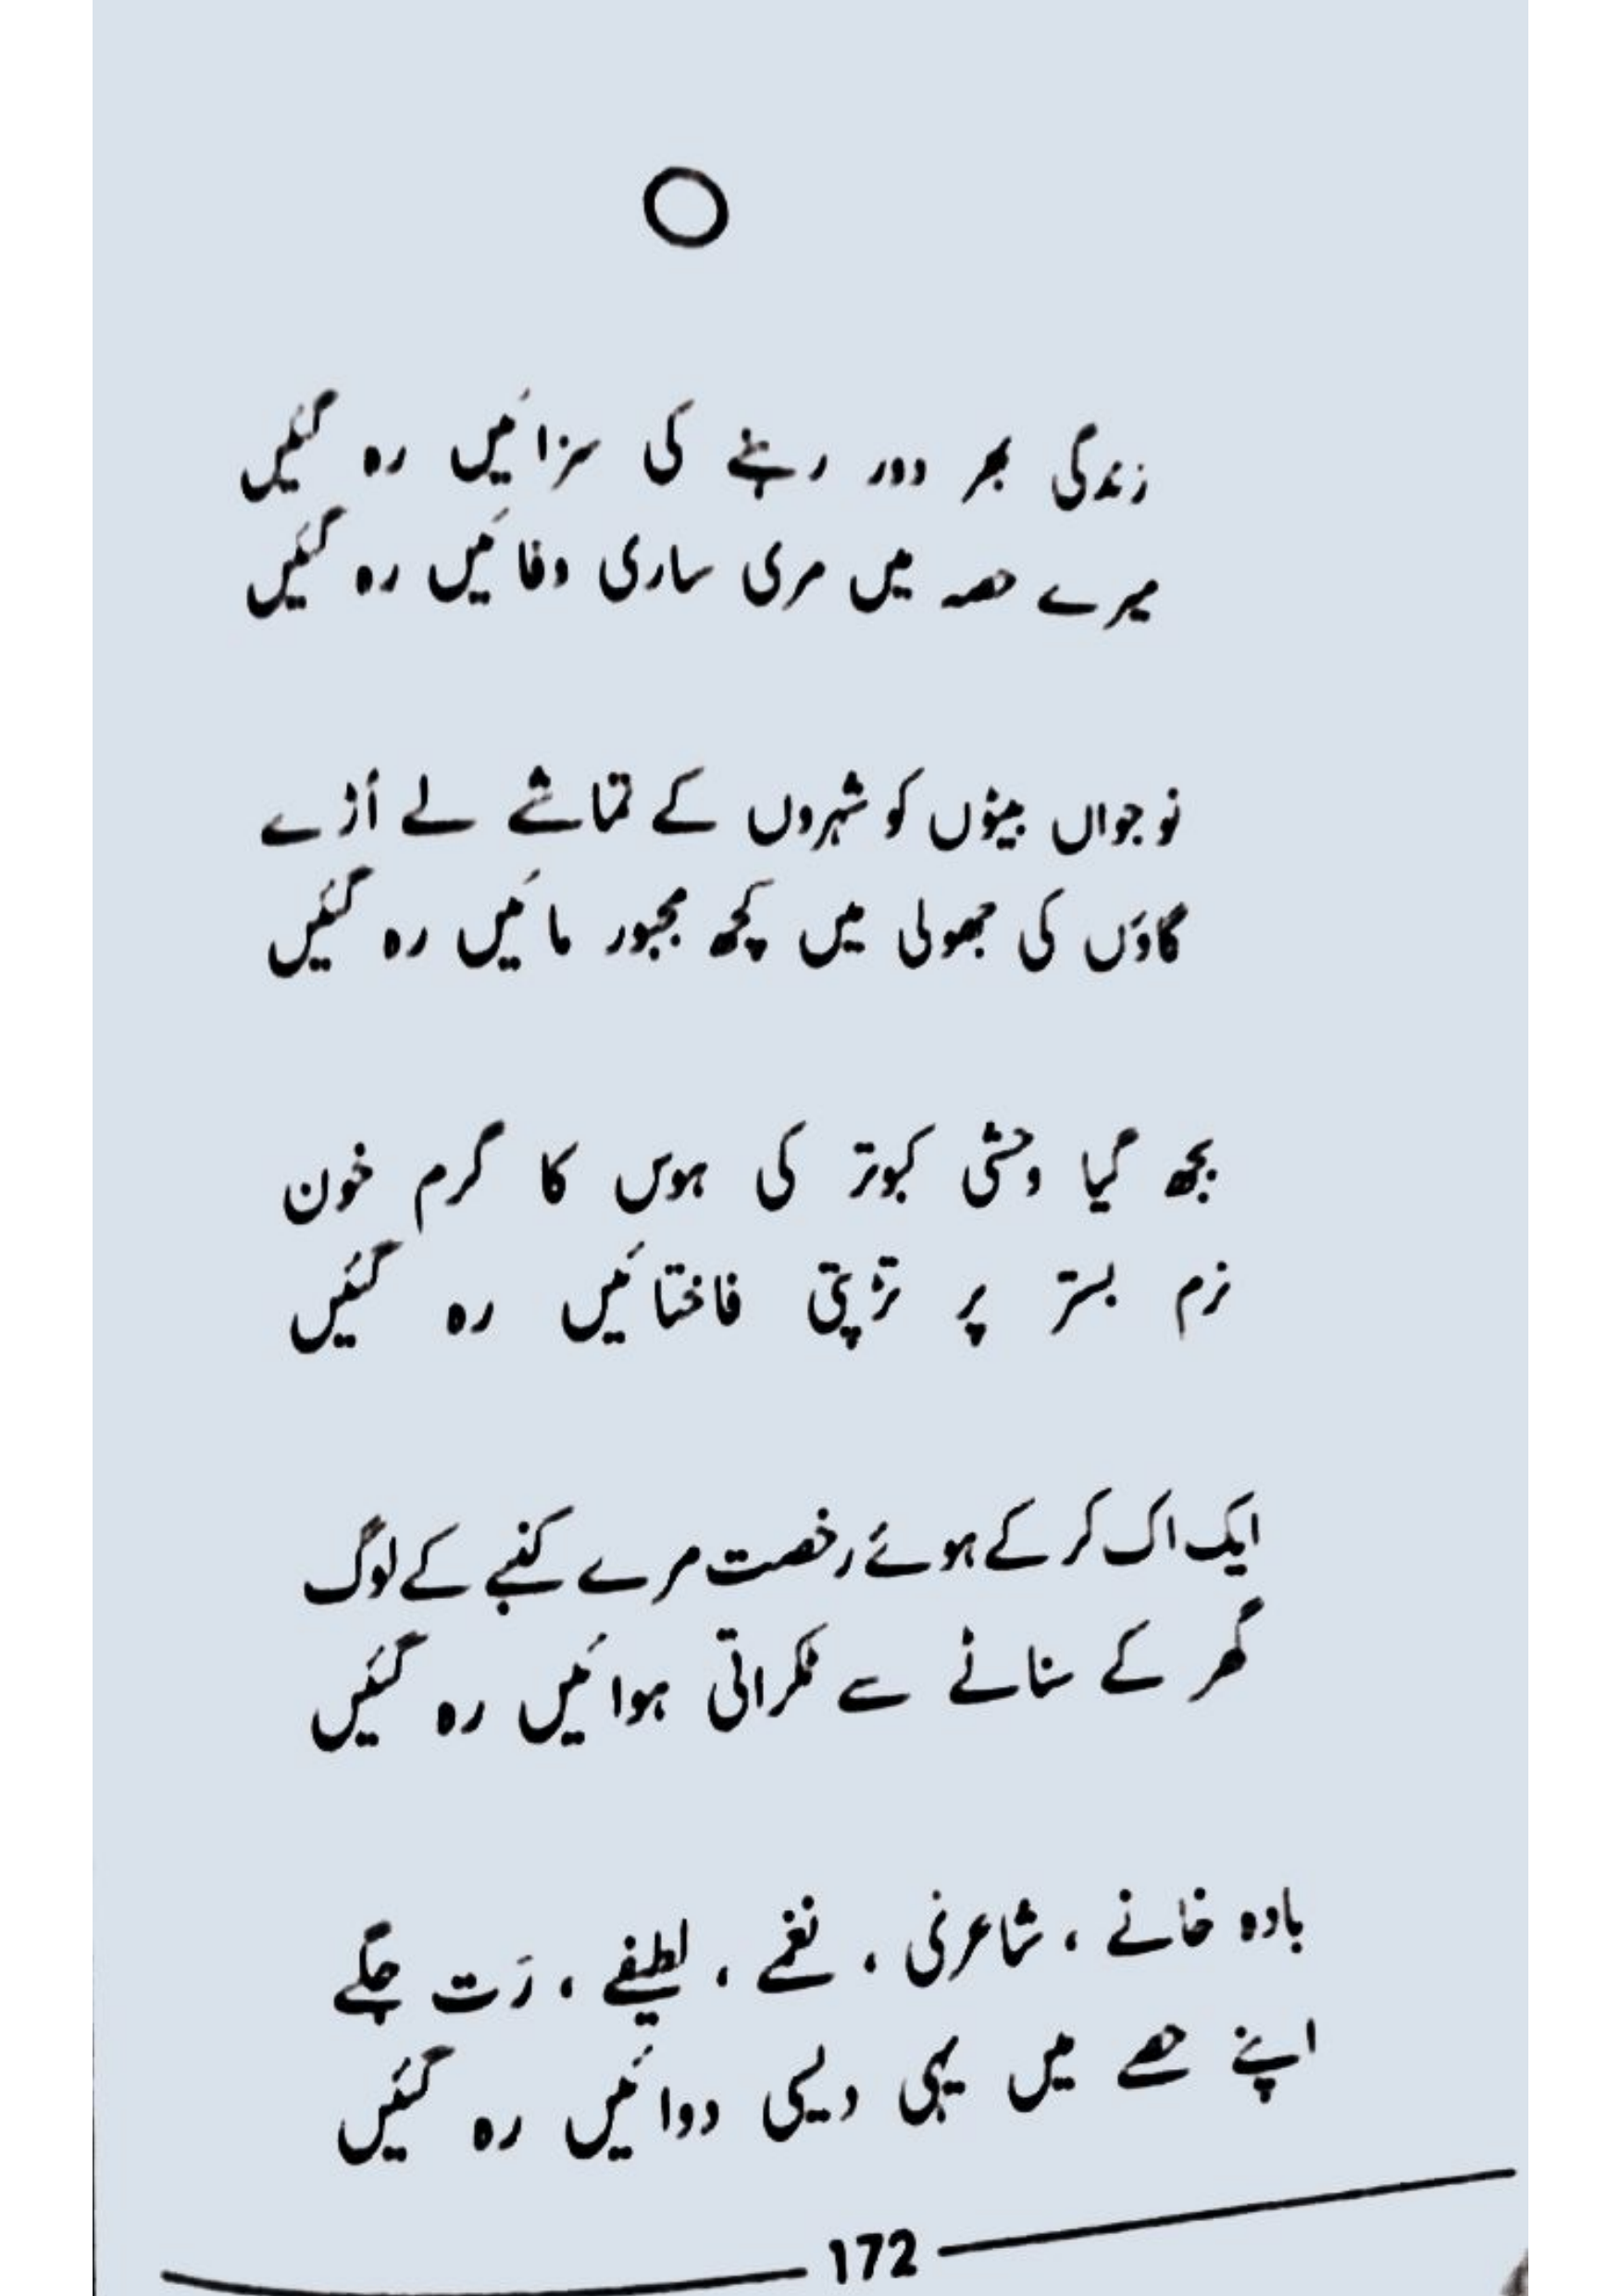 زندگی بھر دور رہنے کی سزائیں رہ گئیں
میرے حصہ میں مری ساری وفائیں رہ گئیں
نوجواں بیٹوں کو شہروں کے تماشے لے اُڑے
گاؤں کی جھولی میں کچھ مجبور مائیں رہ گئیں
بجھ گیا وحشی کبوتر کی ہوس کا گرم خون
نرم بستر پر تڑپتی فاختائیں رہ گئیں
ایک اک کر کے ہوئے رخصت مرے کنبے کے لوگ
گھر کے سناٹے سے ٹکراتی ہوائیں رہ گئیں
بادہ خانے ، شاعری ، نغمے ، لطیفے ، رَت جگے
اپنے حصے میں یہی دیسی دوائیں رہ گئیں
172